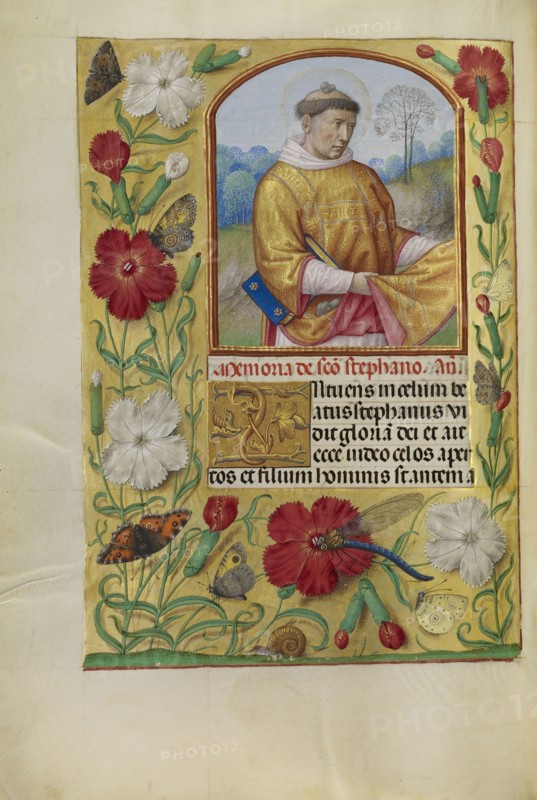 Memoria de scō stephano. Añ.
Intuens in celum be
atus stephanus vi
dit gloriā dei et ait
ecce uideo celos aper
tos et filium hominis stantem a
PHOTO12